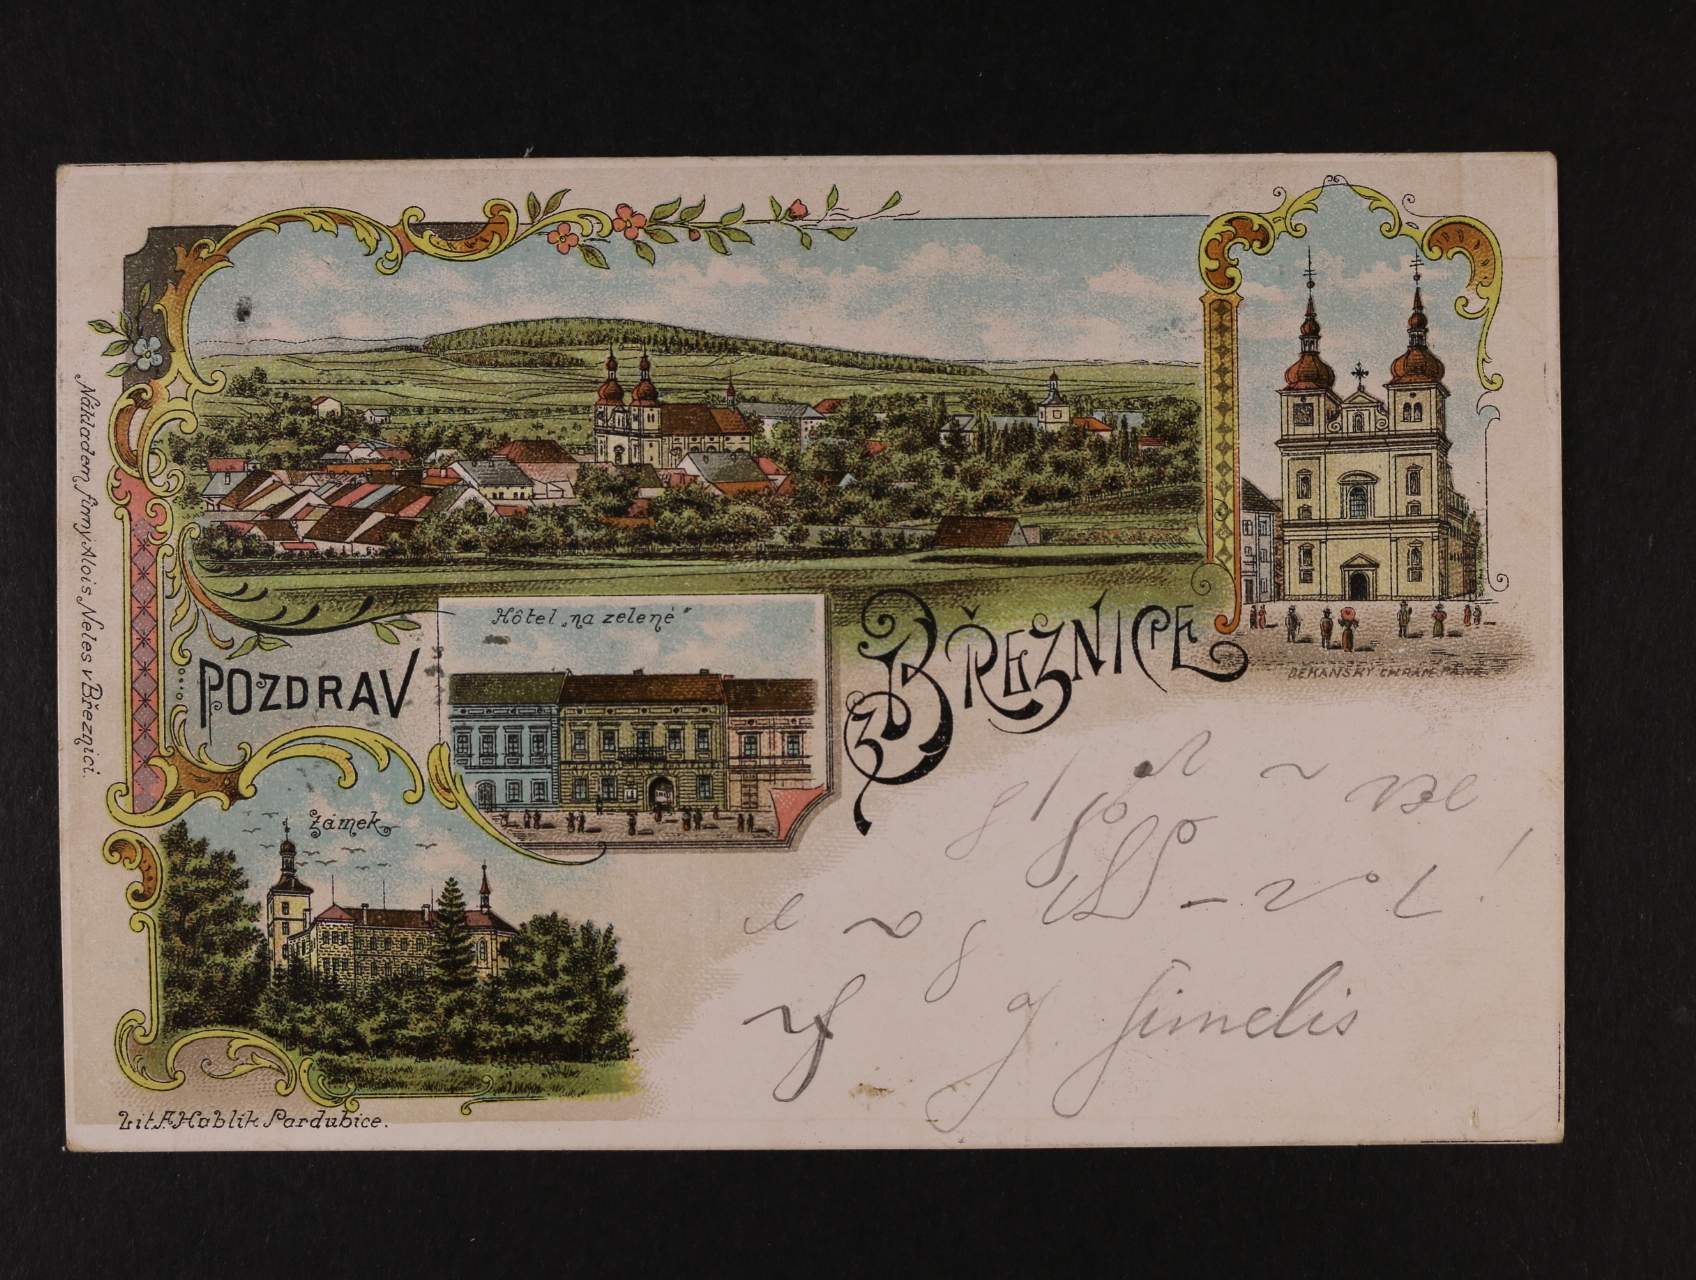 POZDRAV
Z BŘEZNICE
Hôtel „na zelené“
DĚKANSKÝ CHRÁM PÁNĚ
Zámek
Nákladem firmy Alois Neles v Březnici.
Lit. F. Hoblik Pardubice.
J. Simelis